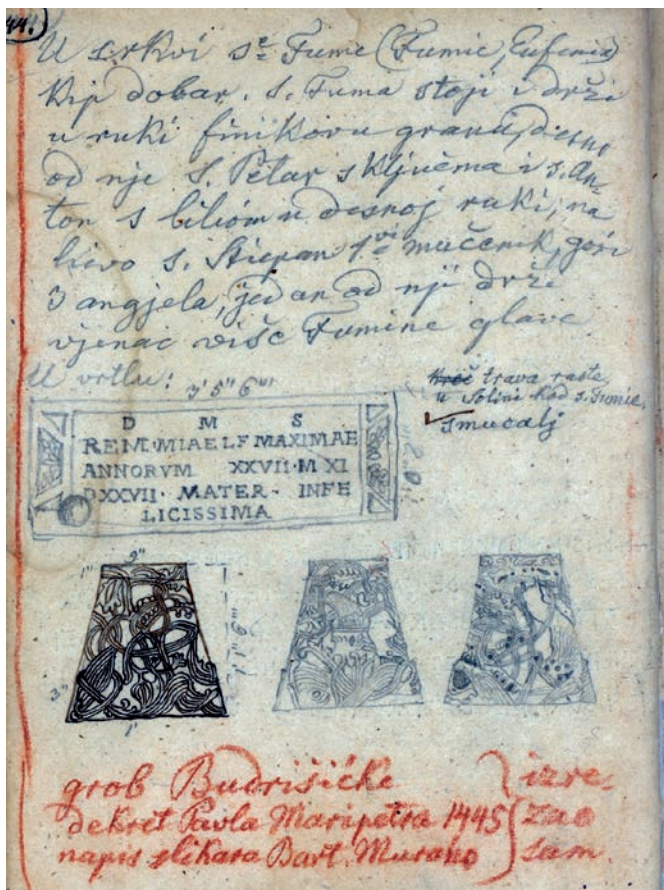 44.
U crkvi se Fume (Fumie, Eufemia)
kip dobar. S. Fuma stoji i drži
u ruki finikovu granu, desno
od nje S. Petar s ključema i s. An-
ton s liliom u desnoj ruki, na
lievo s. Stiepan 1vi mučenik, gori
3 angjela, jedan od nji drži
vjenac više Fumine glave
U vrtlu: 3' 5" 6"'
trava raste
u Solini kod s. Fumie,
smucalj
D M S
REMMIAELF MAXIMAE
ANNORVM XXVII·M XI
DXXVII· MATER - INFE
LICISSIMA
2"
1"
3"
1"
grob Budrišićke
dekret Pavla Maripetra 1445
napis slikara Bart. Murano
izre-
zao
sam.